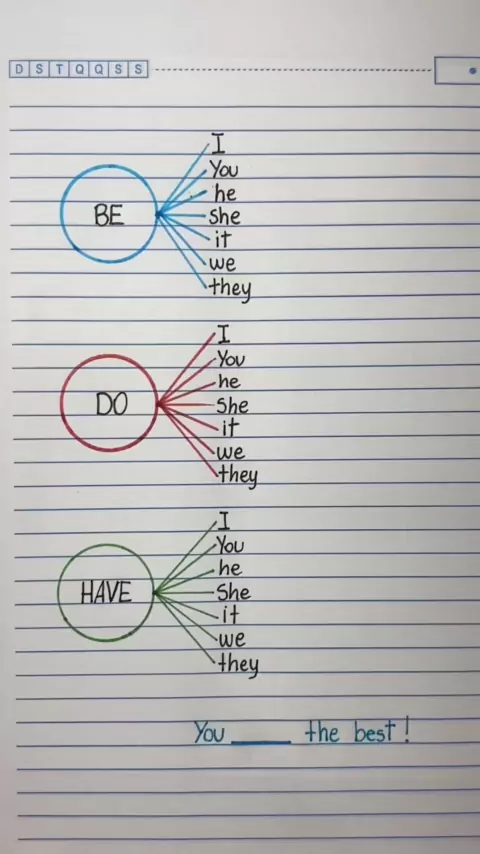 D S T Q Q S S
I
You
he
BE
she
it
we
they
I
You
he
DO
She
it
we
they
I
You
he
HAVE
She
it
we
they
You _____ the best!